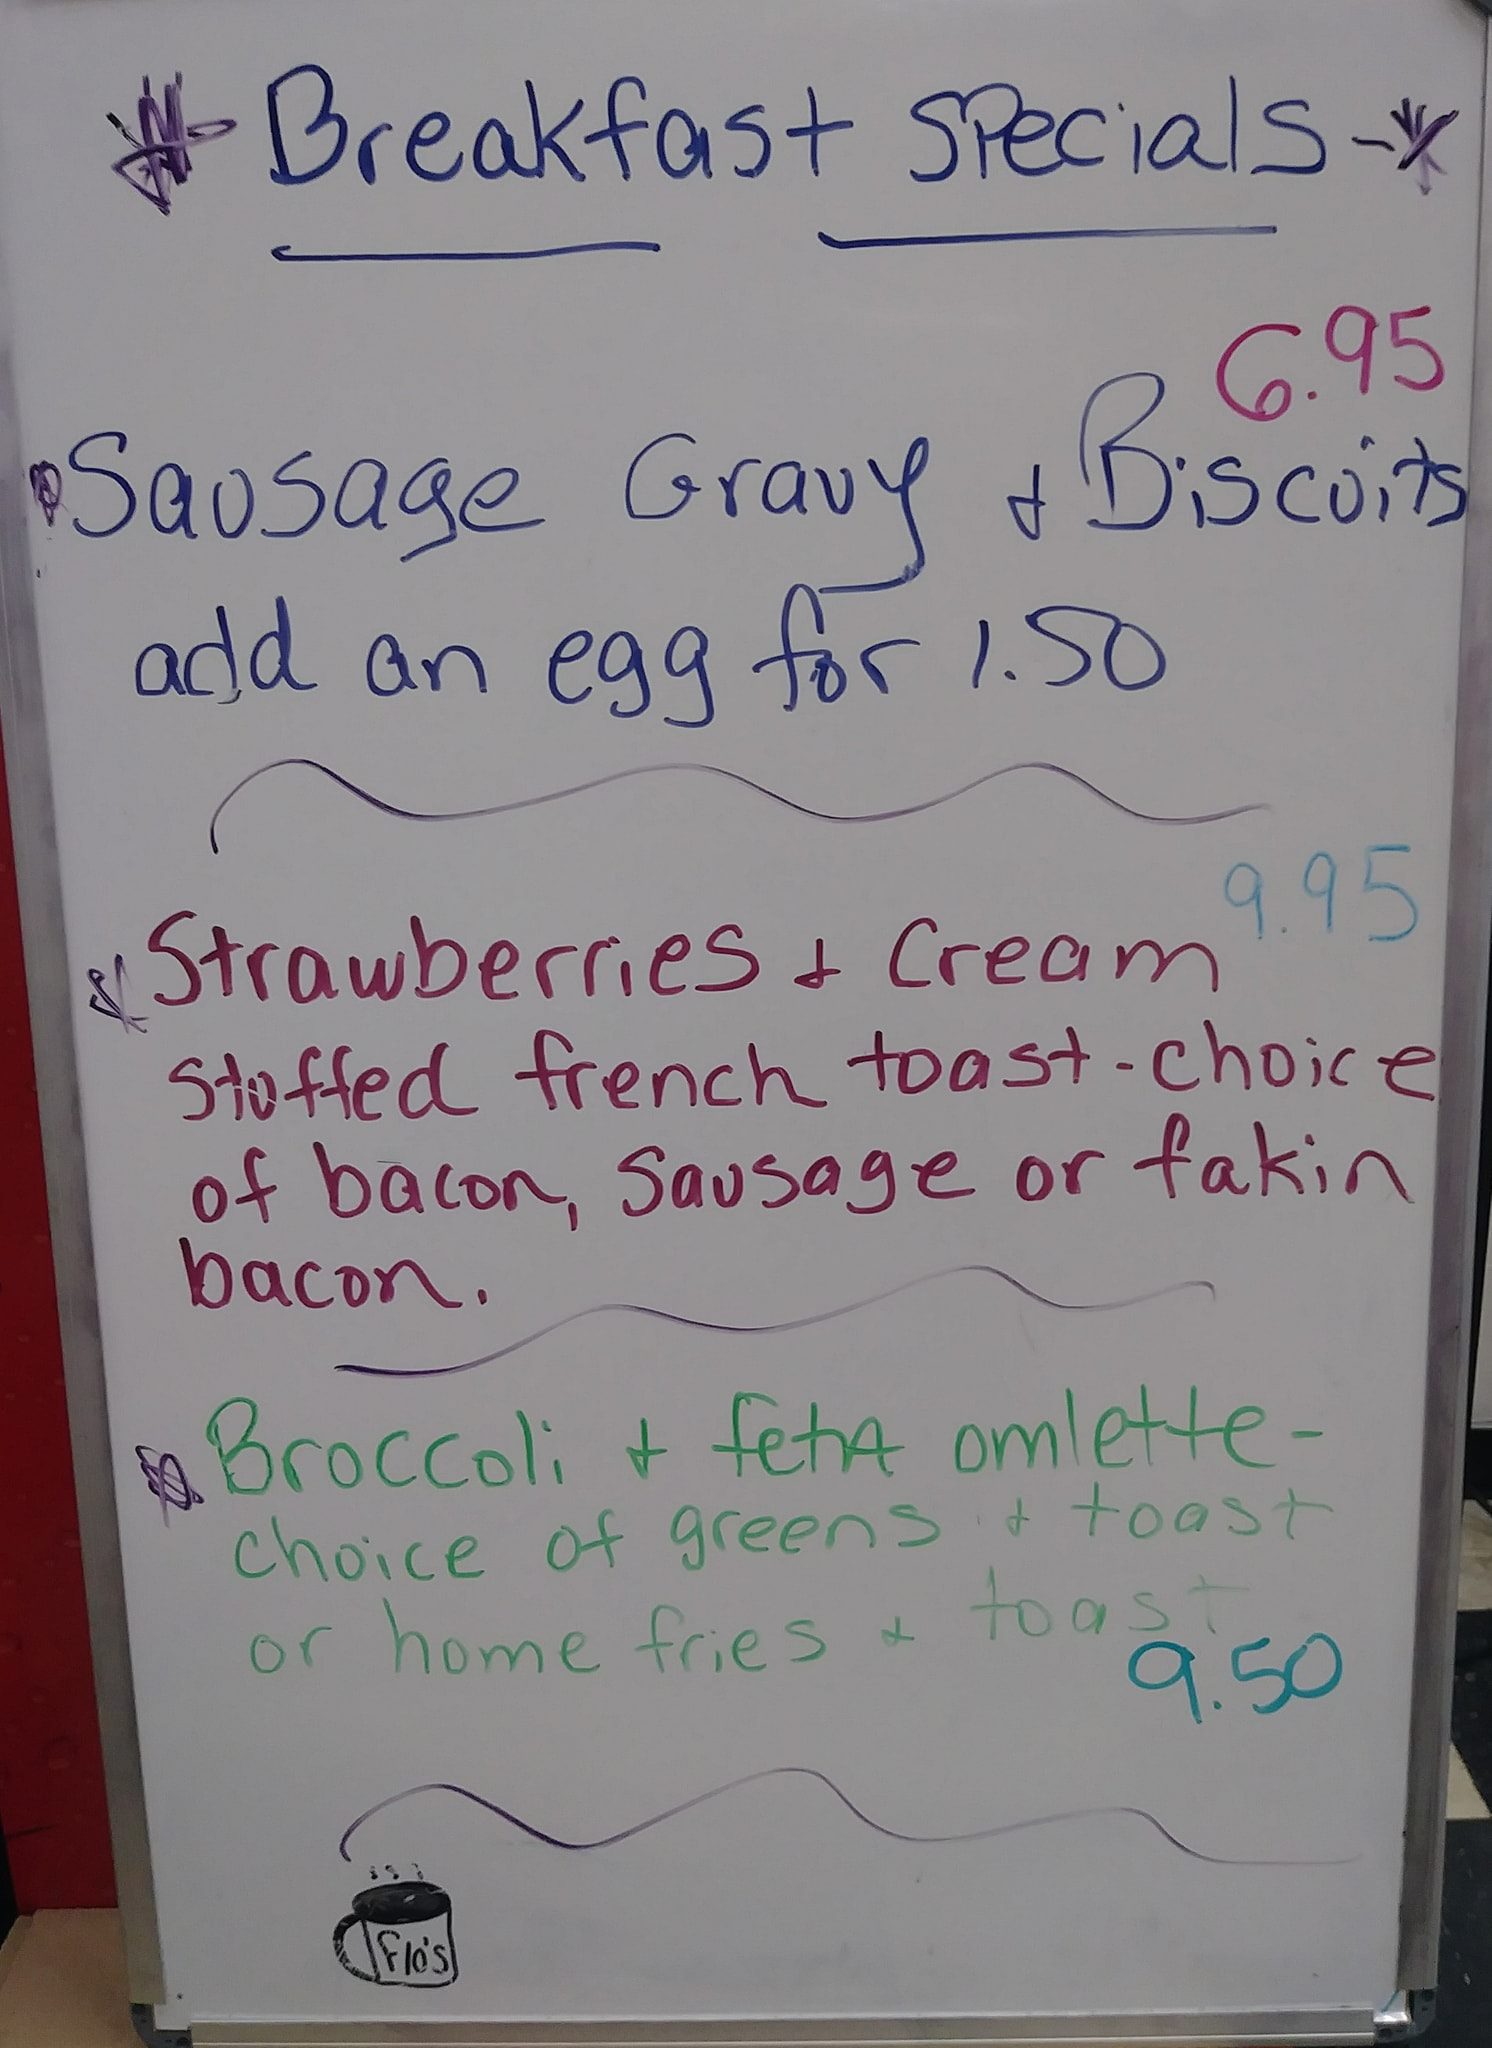 Breakfast Specials
6.95
Sausage Gravy & Biscuits
add an egg for 1.50
9.95
Strawberries & Cream
stuffed french toast - choice
of bacon, sausage or fakin
bacon.
Broccoli & fetA omlette -
choice of greens & toast
or home fries & toast
9.50
Flo's